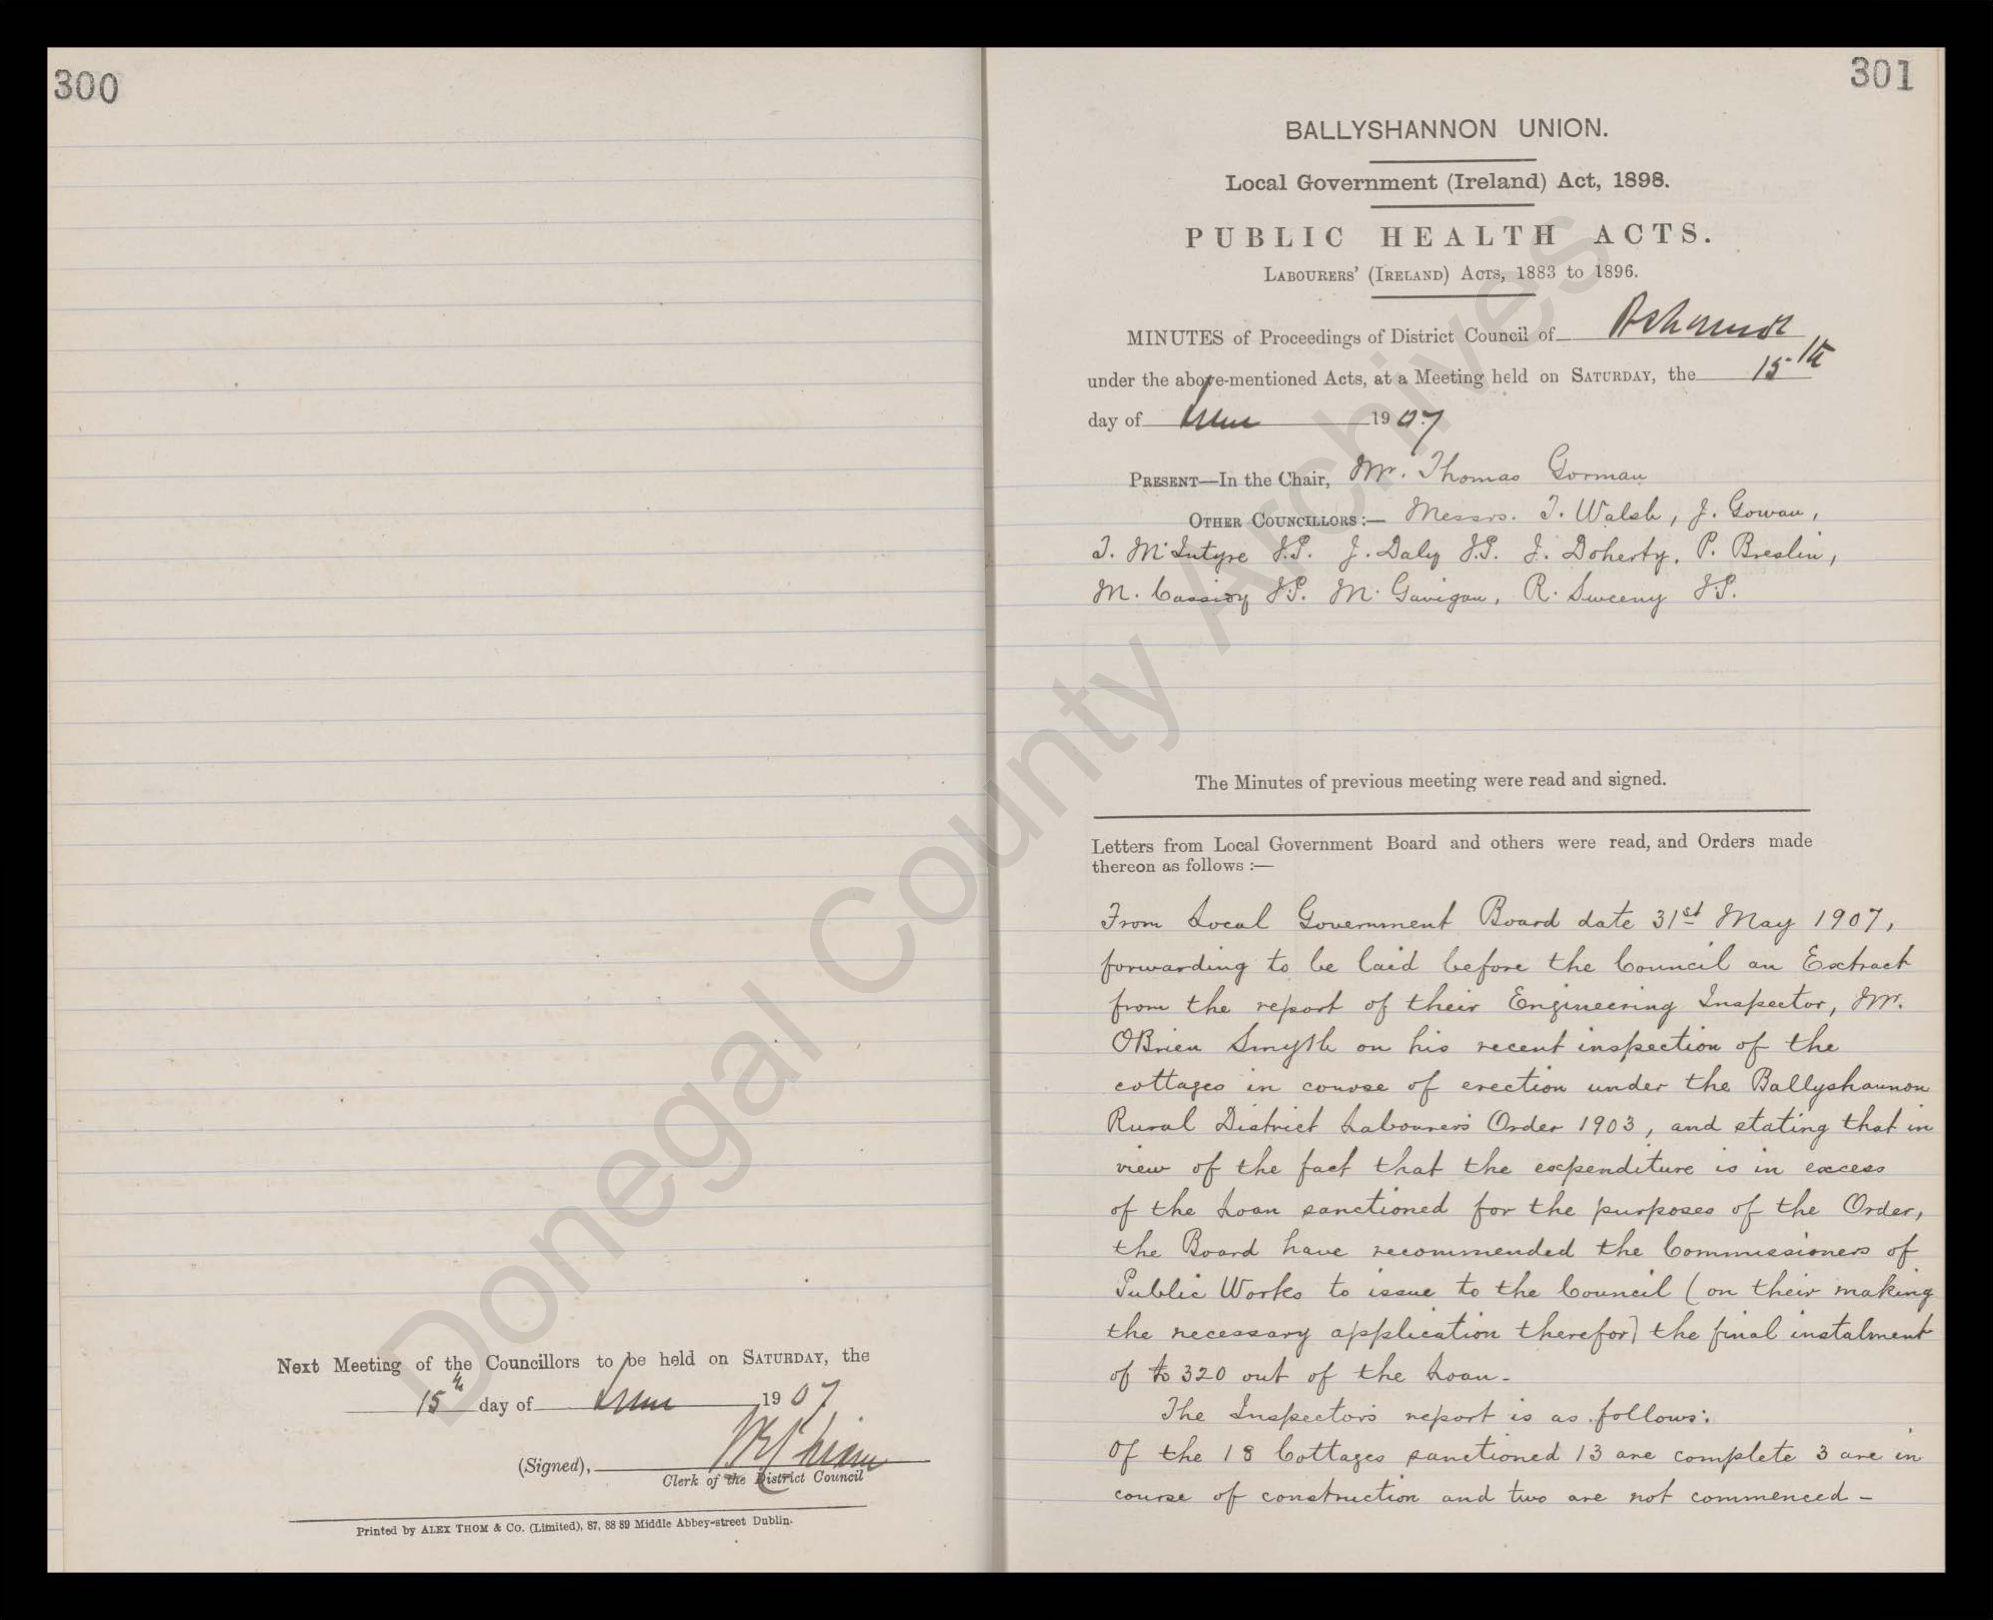 300
Next Meeting of the Councillors to be held on SATURDAY, the
15th day of June 1907
(Signed),
Clerk of the District Council
Printed by ALEX THOM & CO. (Limited), 87, 88 89 Middle Abbey-street Dublin.
301
BALLYSHANNON UNION.
Local Government (Ireland) Act, 1898.
PUBLIC HEALTH ACTS.
LABOURERS' (IRELAND) ACTS, 1883 to 1896.
MINUTES of Proceedings of District Council of
under the above-mentioned Acts, at a Meeting held on SATURDAY, the 15th
day of June 1907
PRESENT—In the Chair, Mr. Thomas Gorman
OTHER COUNCILLORS:— Messrs. T. Walsh, J. Gowan,
T. McIntyre J.P. J. Daly J.P. J. Doherty, P. Breslin,
M. Cassidy J.P. M. Gavigan, R. Sweeny J.P.
The Minutes of previous meeting were read and signed.
Letters from Local Government Board and others were read, and Orders made
thereon as follows :—
From Local Government Board date 31st May 1907,
forwarding to be laid before the Council an Extract
from the report of their Engineering Inspector, Mr.
OBrien Smyth on his recent inspection of the
cottages in course of erection under the Ballyshannon
Rural District Labourers Order 1903, and stating that in
view of the fact that the expenditure is in excess
of the Loan sanctioned for the purposes of the Order,
the Board have recommended the Commissioners of
Public Works to issue to the Council (on their making
the necessary application therefor) the final instalment
of £320 out of the Loan-
The Inspectors report is as follows:
Of the 18 Cottages sanctioned 13 are complete 3 are in
course of construction and two are not commenced -
Donegal County Archives